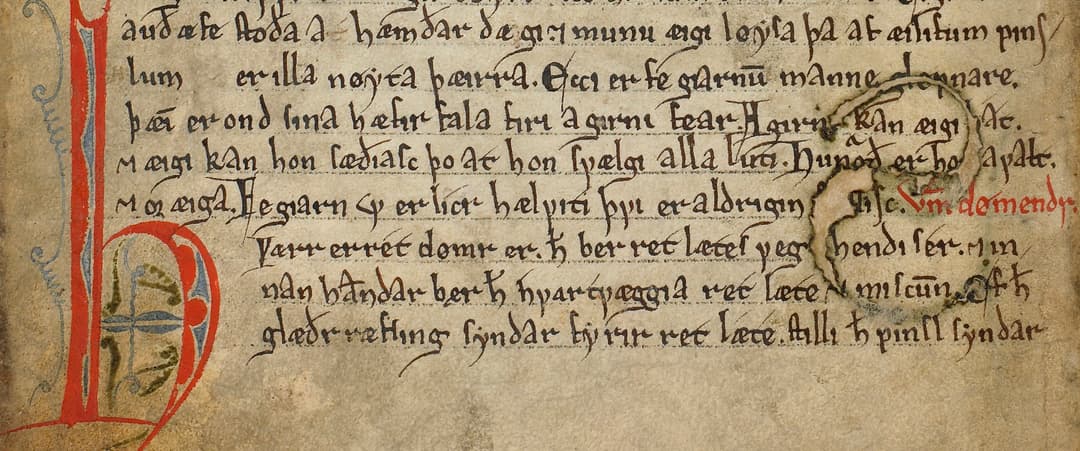 auðæfe stoða a hæmdar dægi ⁊ munu æigi løysa þa at æilifum pinſ/
lum er illa nøyta þæirra. Ecci er fe giarnū manne
þæī er ond sina hæfir fala firi agirni fear. Agirn kān æigi at.
⁊ æigi kan hon sæðiasc þo at hon sƿælgi alla luti. er ho aƿalt.
⁊ æigā. Fe giarn er licr hælƿiti þƿi er aldrigin Vm domendr.
Ƿarr er ret dømr er. ħ ber ret læteſ ƿeg hendi ser. ⁊ in
nan hādar ber ħ hƿartƿæggia ret læte ⁊ miscun. Ef ħ
glæðr ræfsing syndar fyrir ret læte. stilli ħ pinsl syndar